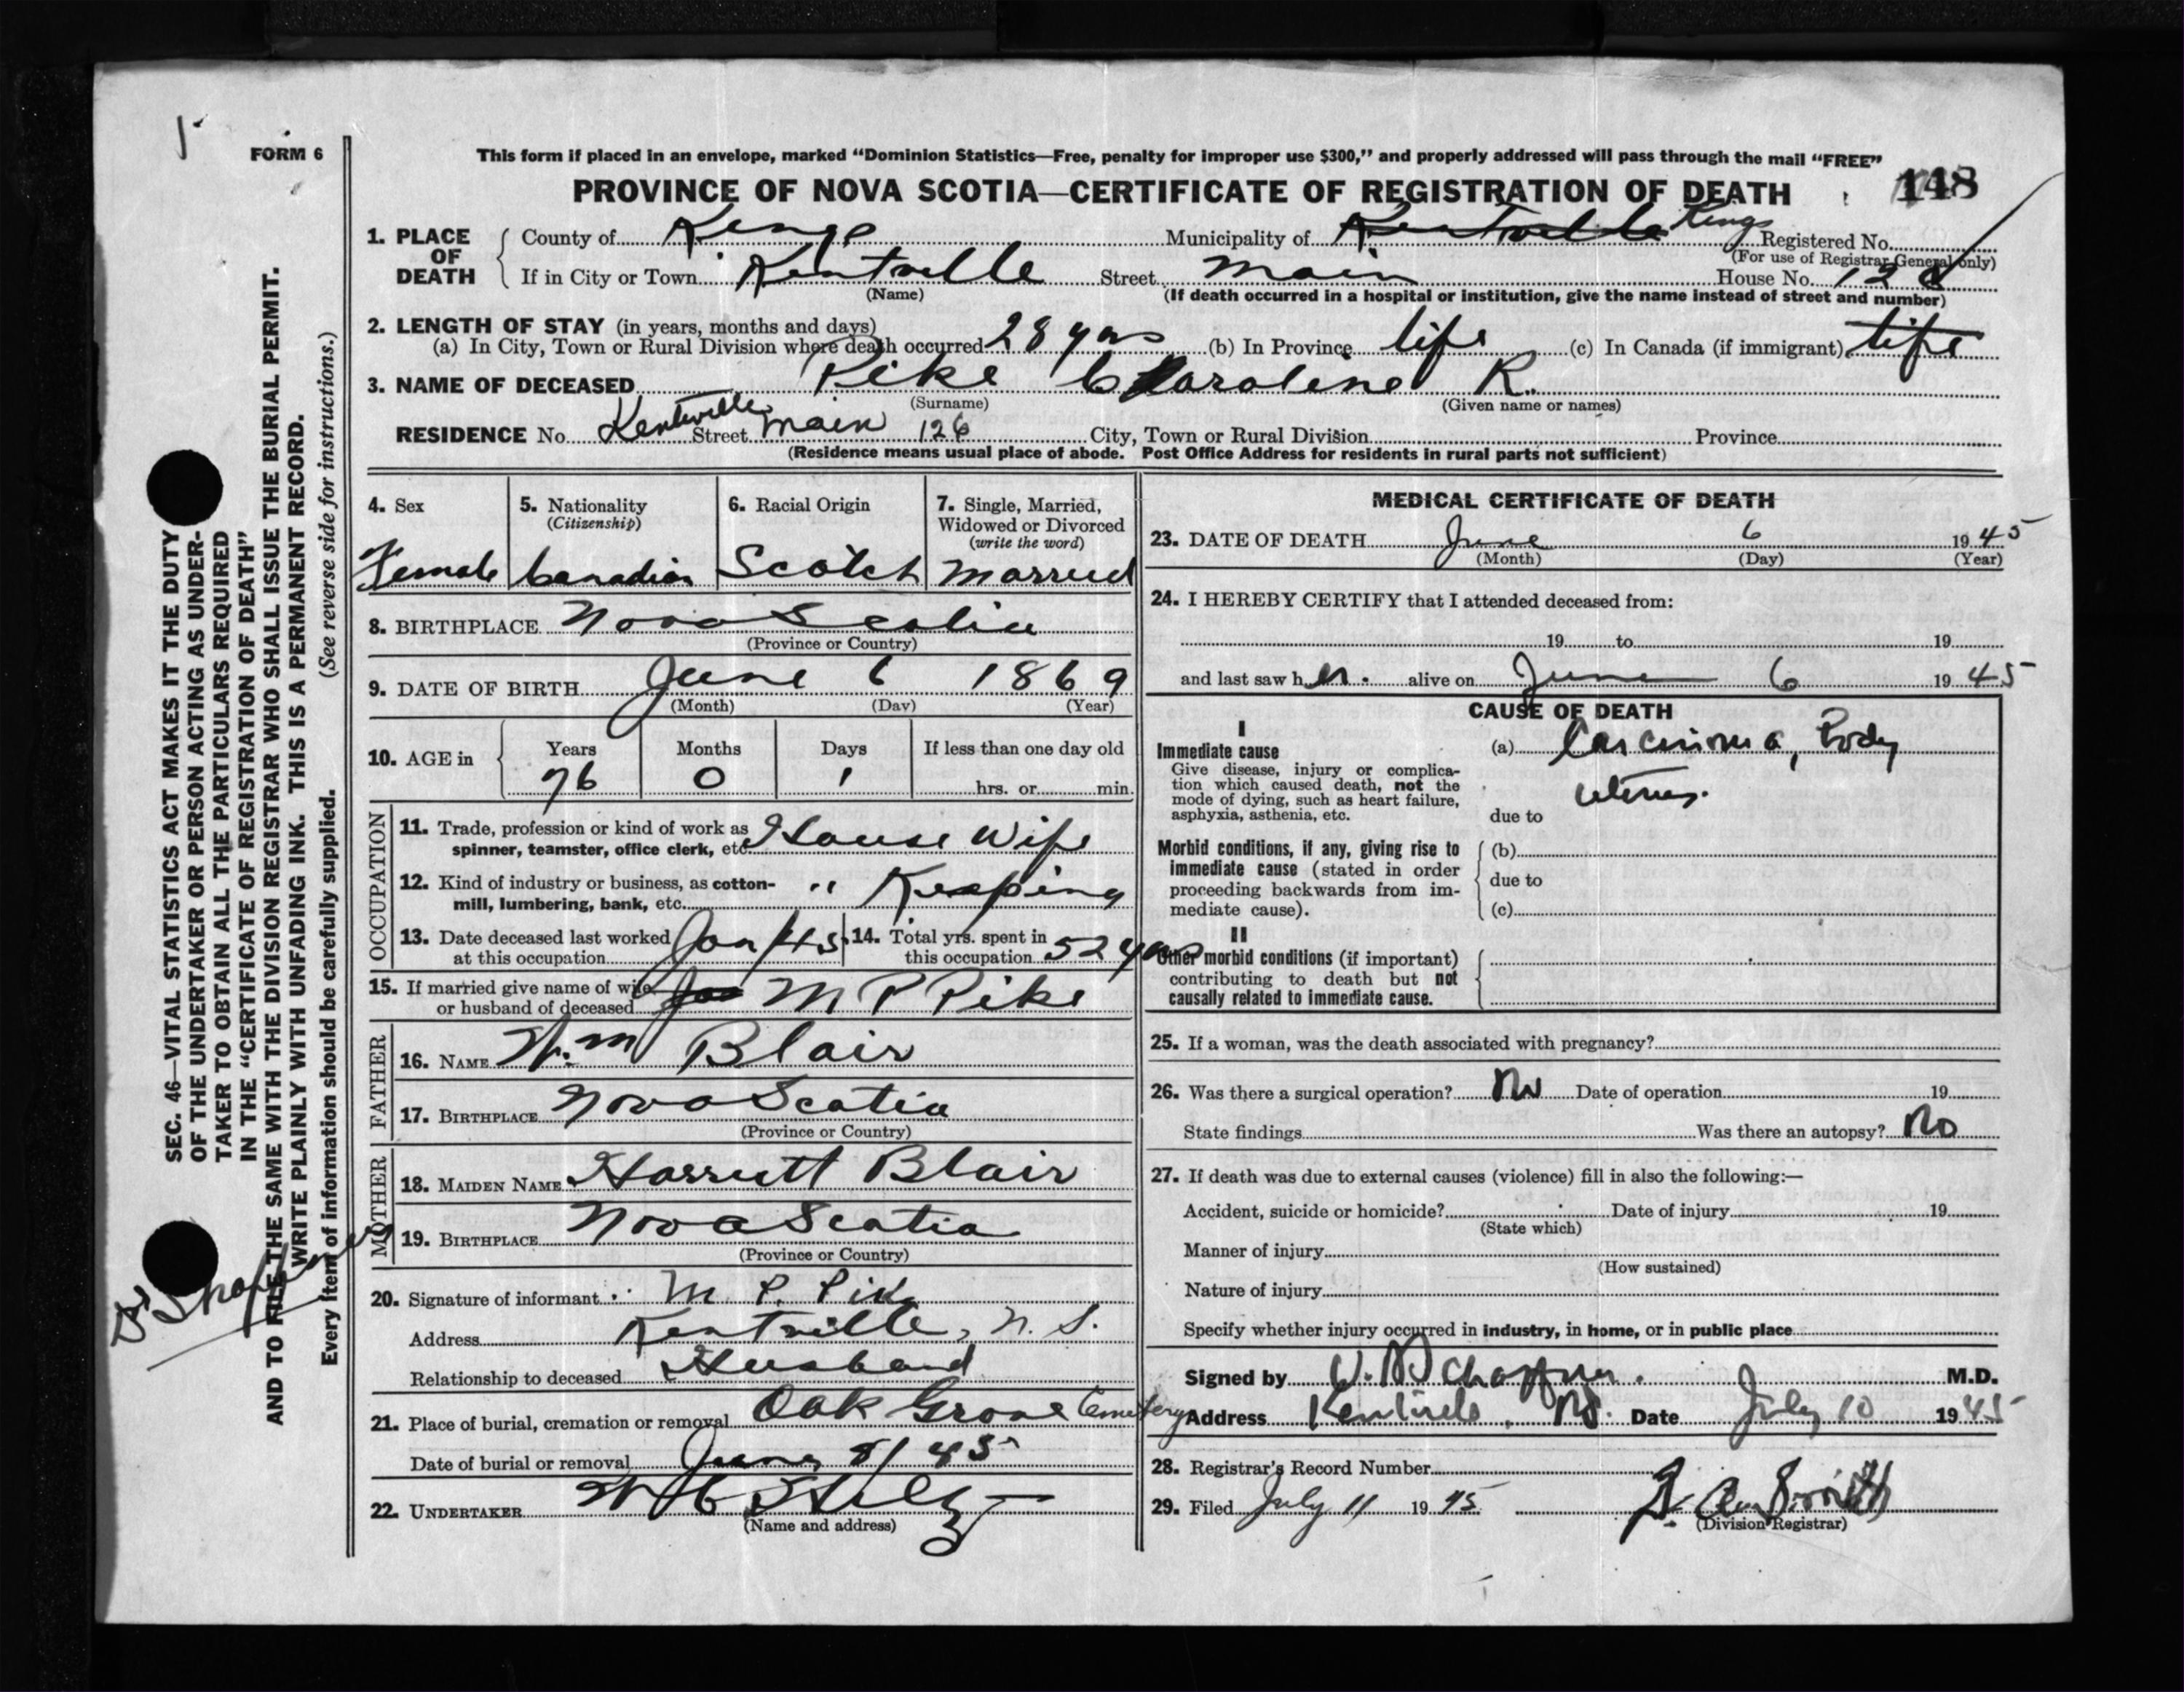 FORM 6
This form if placed in an envelope, marked “Dominion Statistics—Free, penalty for improper use $300,” and properly addressed will pass through the mail “FREE”
PROVINCE OF NOVA SCOTIA—CERTIFICATE OF REGISTRATION OF DEATH
148
1. PLACE OF DEATH
County of Kings Municipality of Kentville Kings Registered No.
(For use of Registrar General only)
If in City or Town Kentville Street Main House No. 128
(Name) (If death occurred in a hospital or institution, give the name instead of street and number)
2. LENGTH OF STAY (in years, months and days)
(a) In City, Town or Rural Division where death occurred 28 yrs (b) In Province life (c) In Canada (if immigrant) life
3. NAME OF DECEASED Pike Caroline R.
(Surname) (Given name or names)
RESIDENCE No. Kentville Street Main 126 City, Town or Rural Division Province
(Residence means usual place of abode. Post Office Address for residents in rural parts not sufficient)
4. Sex
Female
5. Nationality
(Citizenship)
Canadian
6. Racial Origin
Scotch
7. Single, Married,
Widowed or Divorced
(write the word)
Married
8. BIRTHPLACE Nova Scotia
(Province or Country)
9. DATE OF BIRTH June 6 1869
(Month) (Day) (Year)
10. AGE in
Years Months Days If less than one day old
76 0 1 hrs. or min.
OCCUPATION
11. Trade, profession or kind of work as
spinner, teamster, office clerk, etc. House Wife
12. Kind of industry or business, as cotton-
mill, lumbering, bank, etc. " Keeping
13. Date deceased last worked
at this occupation Jan/45
14. Total yrs. spent in
this occupation 52 yrs
15. If married give name of wife
or husband of deceased M P Pike
FATHER
16. NAME Wm Blair
17. BIRTHPLACE Nova Scotia
(Province or Country)
MOTHER
18. MAIDEN NAME Harriett Blair
19. BIRTHPLACE Nova Scotia
(Province or Country)
20. Signature of informant M. P. Pike
Address Kentville, N. S.
Relationship to deceased Husband
21. Place of burial, cremation or removal Oak Grove Cemetery
Date of burial or removal June 8/45
22. UNDERTAKER W C
(Name and address)
MEDICAL CERTIFICATE OF DEATH
23. DATE OF DEATH June 6 1945
(Month) (Day) (Year)
24. I HEREBY CERTIFY that I attended deceased from:
19 to 19
and last saw her alive on June 6 1945
CAUSE OF DEATH
I
Immediate cause
Give disease, injury or complica-
tion which caused death, not the
mode of dying, such as heart failure,
asphyxia, asthenia, etc.
(a) Carcinoma, Body
uterus.
due to
Morbid conditions, if any, giving rise to
immediate cause (stated in order
proceeding backwards from im-
mediate cause).
(b)
due to
(c)
II
Other morbid conditions (if important)
contributing to death but not
causally related to immediate cause.
25. If a woman, was the death associated with pregnancy?
26. Was there a surgical operation? No Date of operation 19
State findings Was there an autopsy? No
27. If death was due to external causes (violence) fill in also the following:—
Accident, suicide or homicide? Date of injury 19
(State which)
Manner of injury
(How sustained)
Nature of injury
Specify whether injury occurred in industry, in home, or in public place
Signed by M.D.
Address Kentville, NS. Date July 10 1945
28. Registrar's Record Number
29. Filed July 11 1945
(Division Registrar)
SEC. 46—VITAL STATISTICS ACT MAKES IT THE DUTY
OF THE UNDERTAKER OR PERSON ACTING AS UNDER-
TAKER TO OBTAIN ALL THE PARTICULARS REQUIRED
IN THE “CERTIFICATE OF REGISTRATION OF DEATH”
AND TO FILE THE SAME WITH THE DIVISION REGISTRAR WHO SHALL ISSUE THE BURIAL PERMIT.
WRITE PLAINLY WITH UNFADING INK. THIS IS A PERMANENT RECORD.
Every item of information should be carefully supplied. (See reverse side for instructions.)